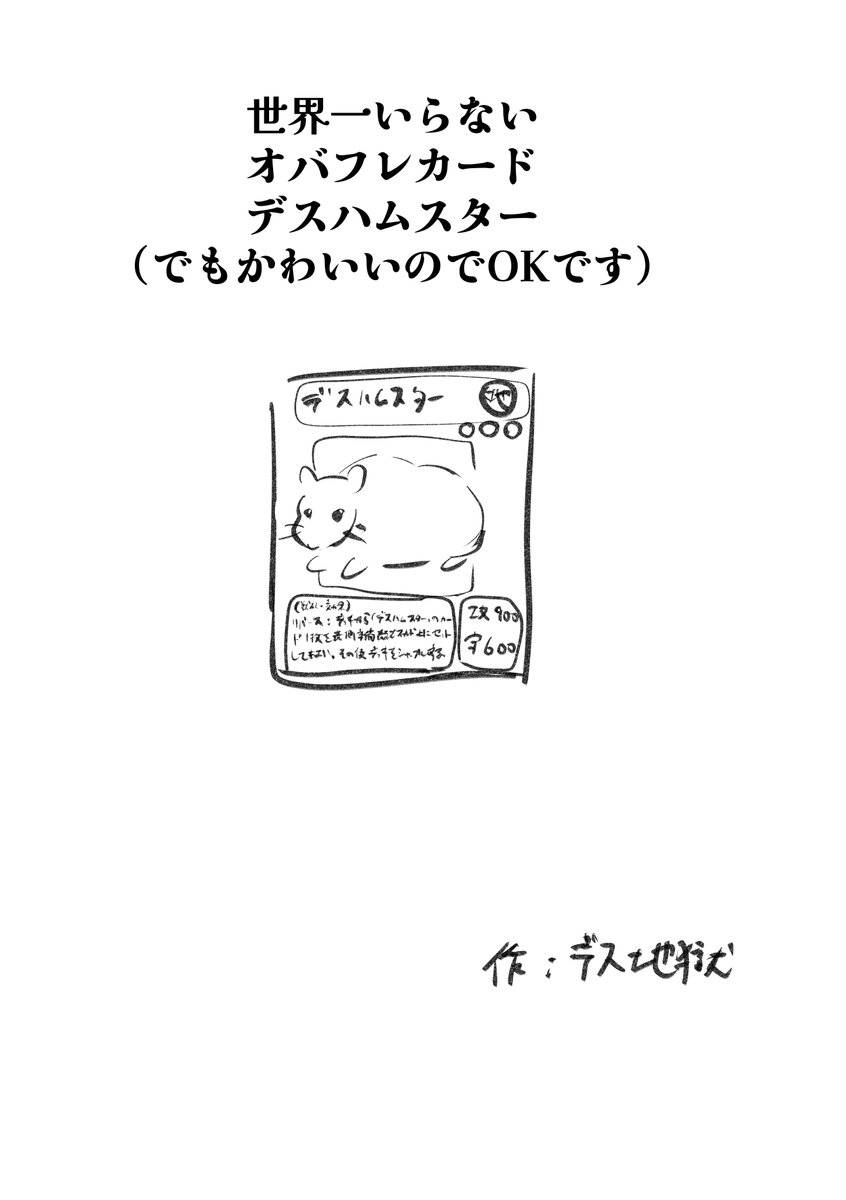 世界一いらない
オバフレカード
デスハムスター
（でもかわいいのでOKです）
デスハムスター
地
リバース：デッキから「デスハムスター」のカー
ド1枚を裏側守備
セット
してもよい。その後デッキをシャッフルする
攻900
守600
作：デス地獄